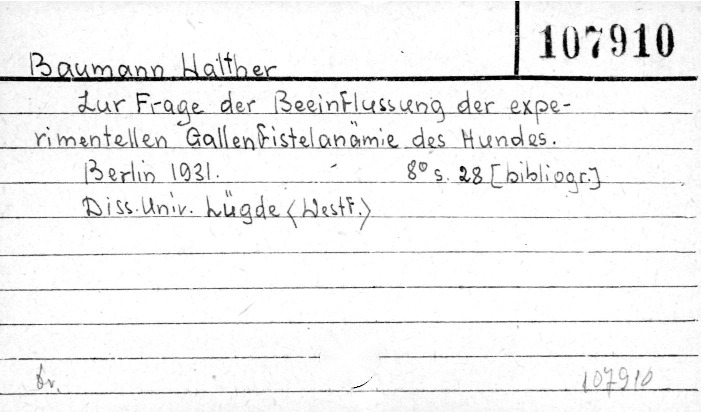 107910
Baumann Walther
Zur Frage der Beeinflussung der expe-
rimentellen Gallenfistelanämie des Hundes.
Berlin 1931. 8° s. 28 [bibliogr.]
Diss. Univ. Lügde <Westf.>
107910